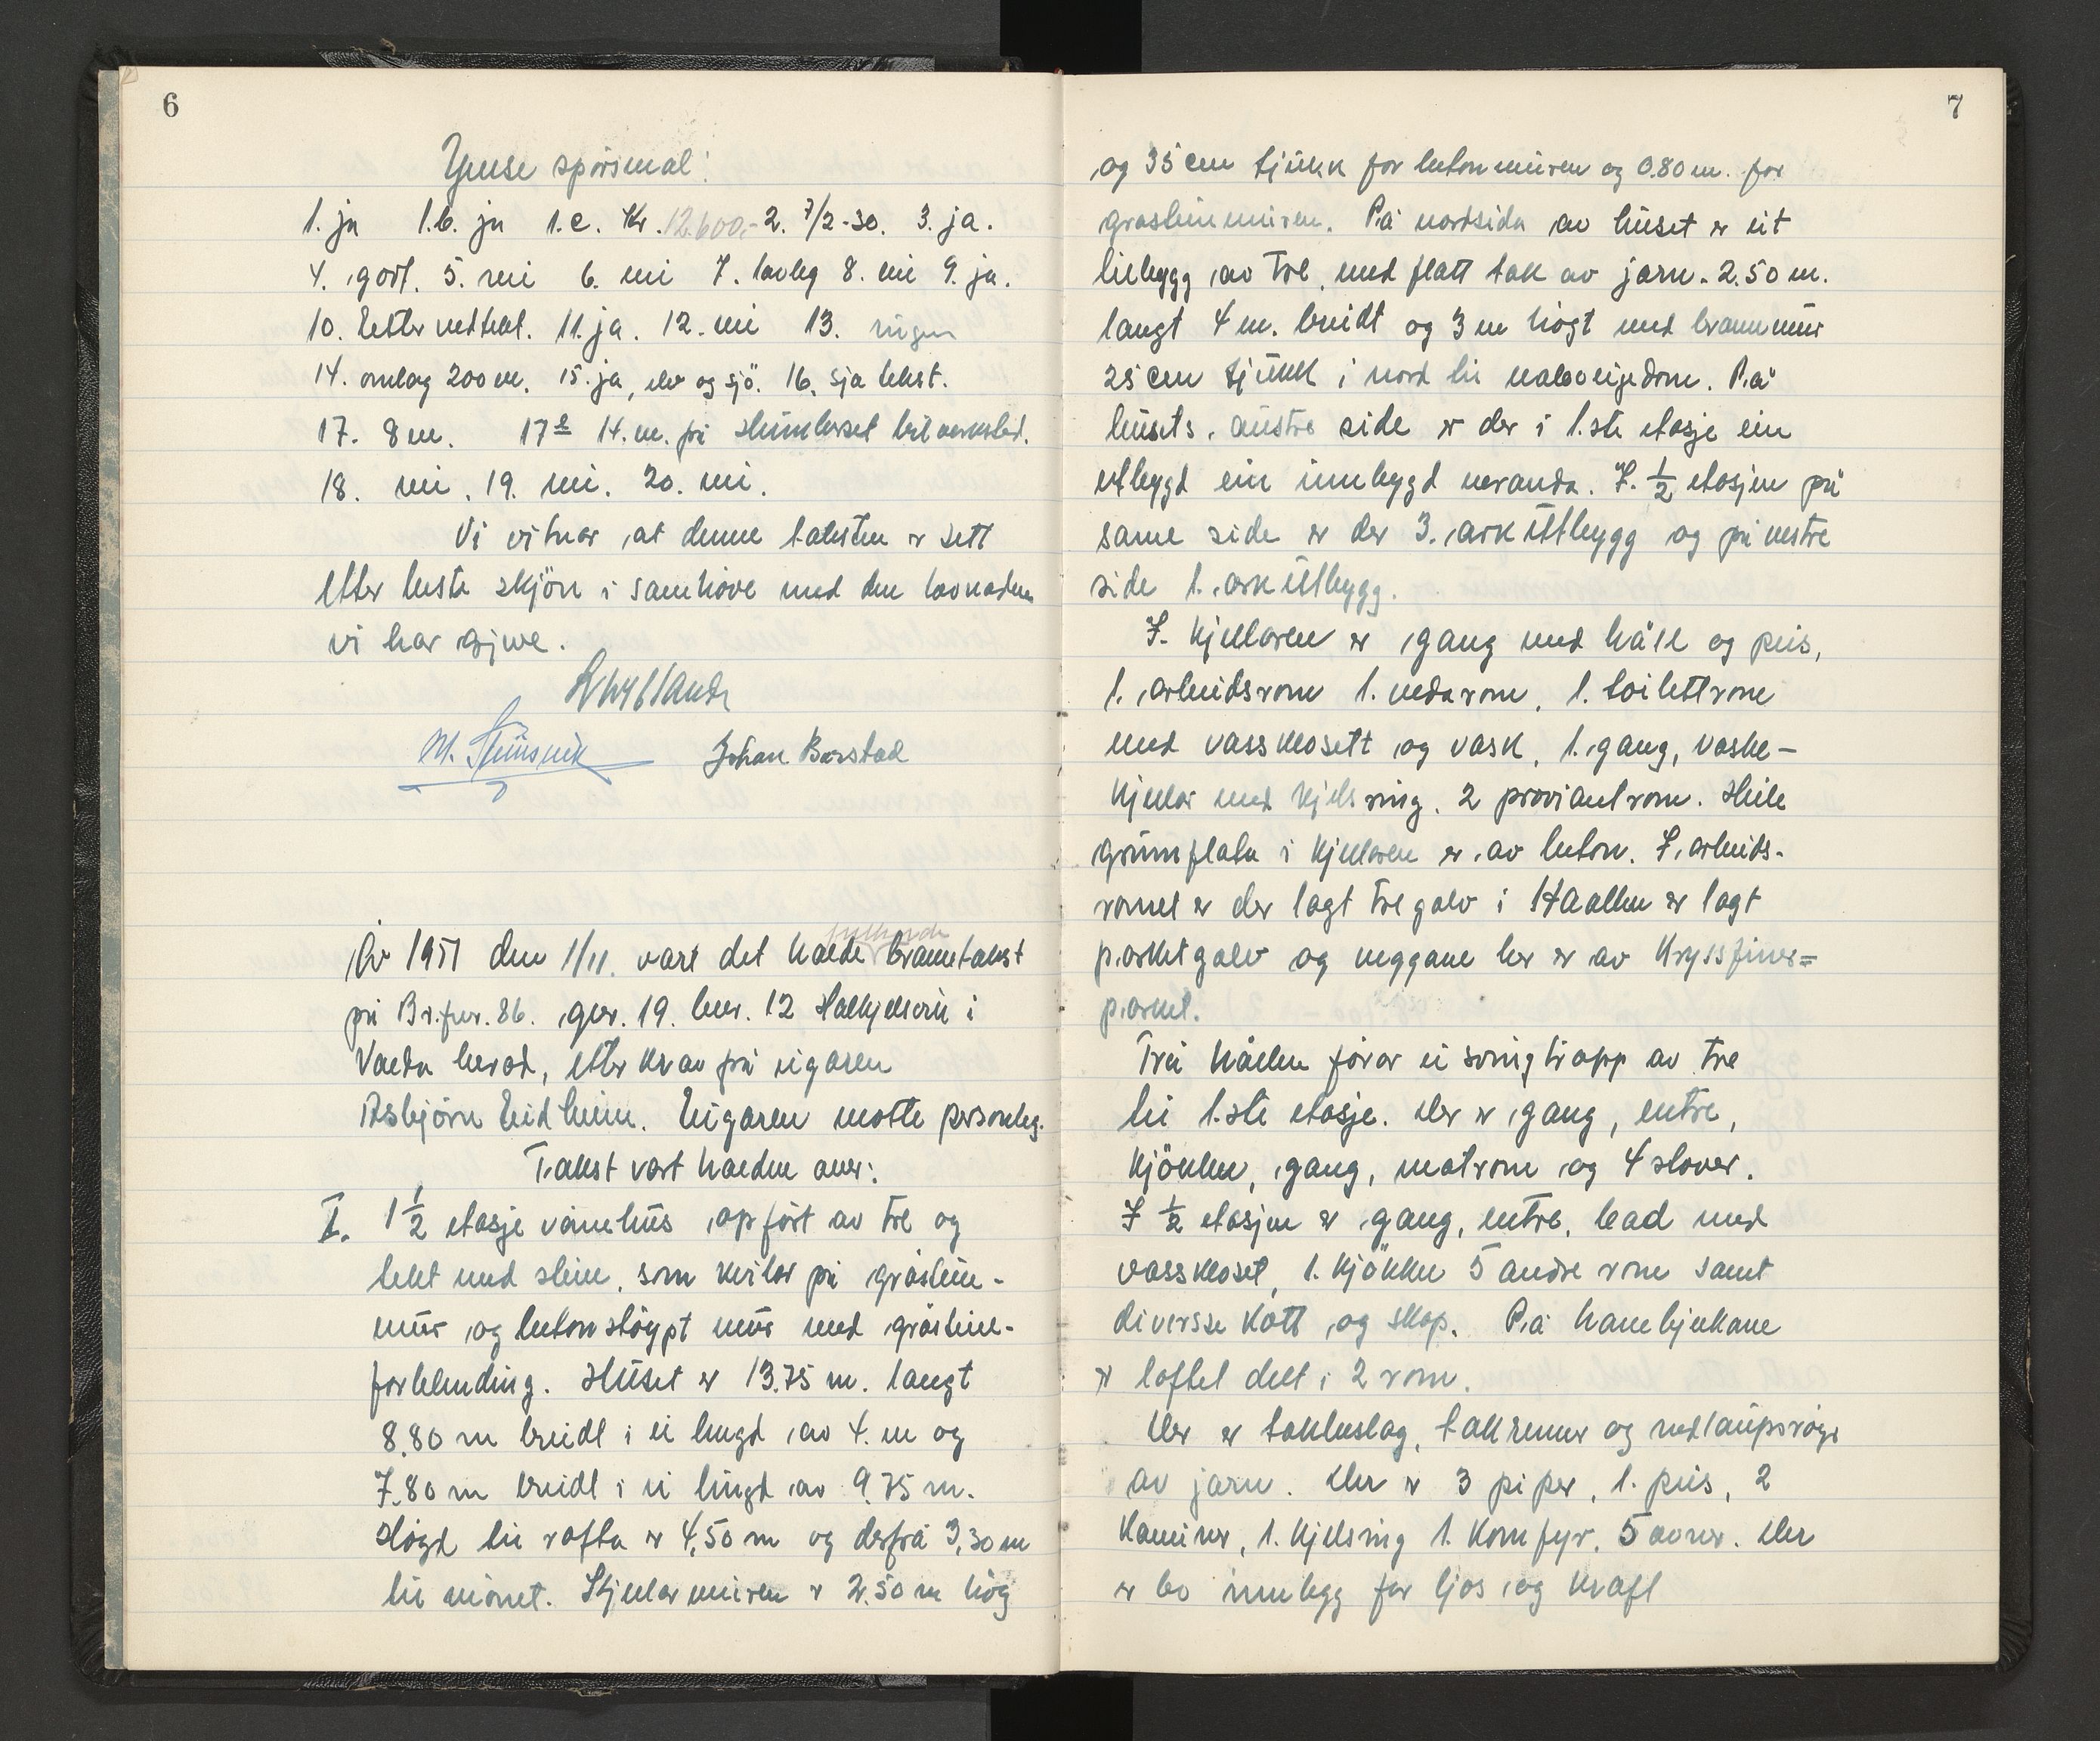 6
Ymse spörsmal:
1. ja 1.b. ja 1.c. Kr. 12.600,- 2. 7/2-30. 3. ja.
4. godt. 5. nei 6. nei 7. lovleg 8. nei 9. ja.
10. Etter vedtekt. 11. ja. 12. nei 13. ingen
14. omlag 200 m. 15. ja, elv og sjö. 16. sja tekst.
17. 8 m. 17a 14. m. på bilverkstad.
18. nei. 19. nei. 20. nei.
Vi vitnar at denne taksten er sett
etter beste skjön i samhöve med den lovnaden
vi har gjeve.
Johan Barstad
fullgode
År 1951 den 1/11. vart det halde branntakst
på Br.fnr. 86. gnr. 19. bnr. 12 i
Volda herad, etter krav på eigaren
Asbjörn Eidheim. Eigaren motte personleg.
Takst vart halden over:
I. 1 1/2 etasje vånehus opfört av tre og
tekt med stein, som kviler på gråstein-
mur og betonstöypt mur med gråstein-
forblending. Huset er 13.75 m. langt
8.80 m breidt i ei lengd av 4. m og
7.80 m breidt i ei lengd av 9.75 m.
Högd til rafta er 4,50 m og derfrå 3,30 m
til mönet. Kjellarmuren er 2.50 m hög
7
og 35 cm tjukk for betonmuren og 0.80 m. for
grasteinmuren. På nordsida av huset er eit
tilbygg av tre, med flatt tak av jarn. 2.50 m.
langt 4 m. breidt og 3 m högt med brannmur
25 cm tjukk i nord til naboeigedom. På
husets. austre side er der i 1.ste etasje ein
utbygd ein innbygd veranda. I. 1/2 etasjen på
same side er der 3. ark utbygg og på vestre
side 1. ark utbygg.
I. kjellaren er gang med håll og peis,
1. arbeidsrom 1. vedarom, 1. toilettrom
med vassklosett og vask, 1. gang, vaske-
kjellar med kjelsring. 2 proviantrom. Heile
grunnflata i kjellaren er av beton. I. arbeids-
romet er der lagt tregolv i Haallen er lagt
parketgolv og veggane her er av Kryssfiner=
parket.
Frå hållen förer ei svingtrapp av tre
til 1.ste etasje. Der er gang, entre,
kjökken, gang, matrom og 4 stover.
I 1/2 etasjen er gang, entre, bad med
vasskloset, 1. kjökken 5 andre rom samt
diversse kott og skap. På hanebjelkane
er loftet delt i 2 rom.
Der er takbeslag, takrenner og nedlaupsröyr
av jarn. Der er 3 piper, 1. peis, 2
kaminer, 1. kjelsring 1. komfyr. 5 ovner. Der
er to innlegg for ljos og kraft